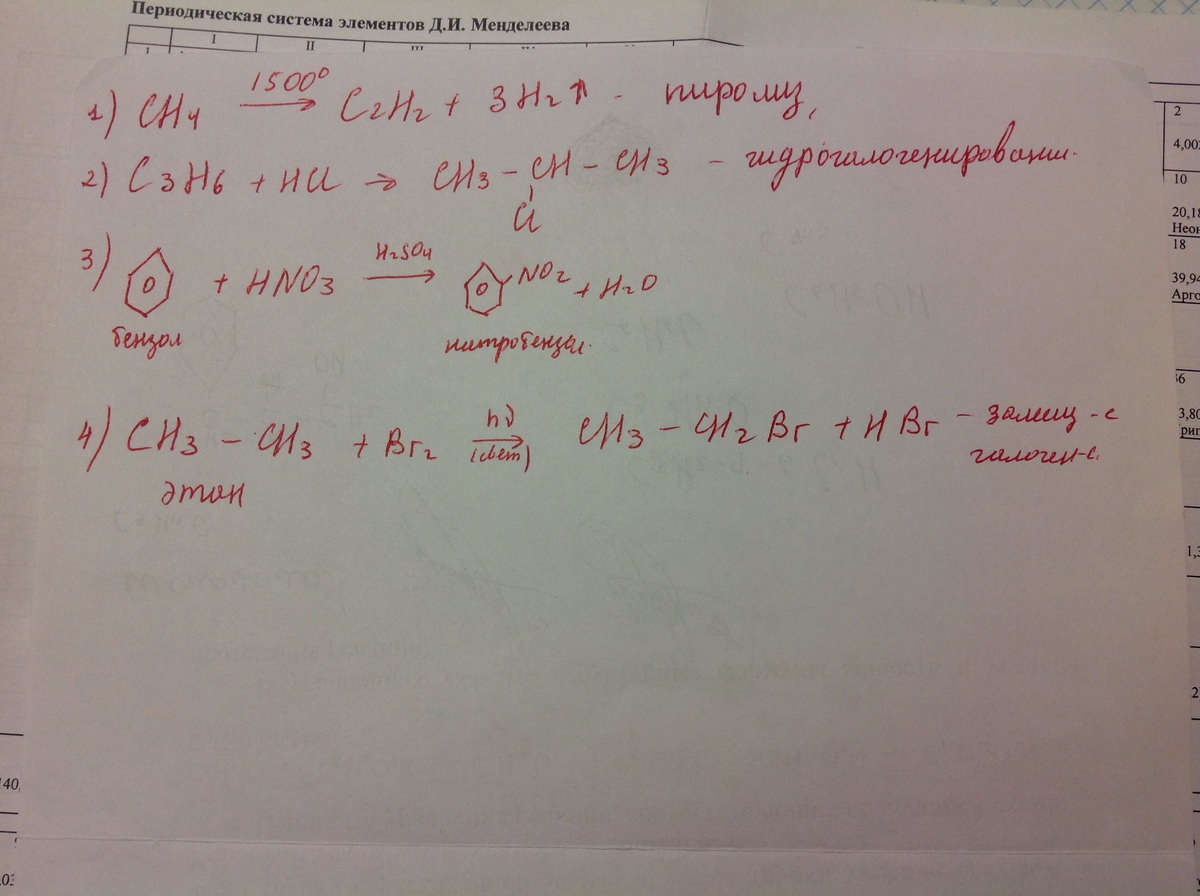 Периодическая система элементов Д.И. Менделеева
I II III
1) CH4 1500° → C2H2 + 3H2↑ - пиролиз,
2) C3H6 + HCl → CH3 – CH – CH3 – гидрогалогенировани.
Cl
3) + HNO3 H2SO4 → NO2 + H2O
бензол нитробензол.
4) CH3 – CH3 + Br2 hν → (свет) CH3 – CH2Br + HBr – замещ-е
галоген-е.
этан
2
4,00
10
20,18
Неон
18
39,94
Арго
36
3,80
1,3
2
140,